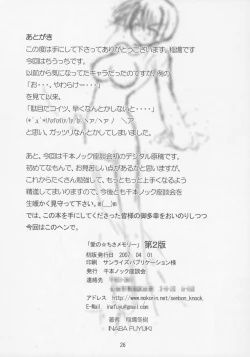 あとがき
この度は手にして下さってありがとうございます。稲嶺です
今回はちうっちです。
以前から気になってたキャラだったのですが、例の
「お・・・、やわらけー・・・」
を見て以来、
「駄目だコイツ、早くなんとかしないと・・・・」
と思い、ガッツリなんとかしてしまいました。
あと、今回は千本ノック座談会初のデジタル原稿です。
初めてなもんで、お見苦しい点があるかと思いますが、
これからたくさん勉強して、もっともっと上手くなるよう
精進してまいりますので、今後とも千本ノック座談会を
生暖かく見守って下さい。m(__)m
では、この本を手にしてくださった皆様の御多幸をおいのりしつつ
今回はこのヘンで。
「愛の☆ちさメモリー」 第2版
初版発行日 2007 04 01
印刷 サンライズパブリケーション様
発行 千本ノック座談会
連絡先
アドレス http://www.mokorin.net/senbon_knock
E-Mail inafuyu@gmail.com
著者 稲嶺冬樹
INABA FUYUKI
26